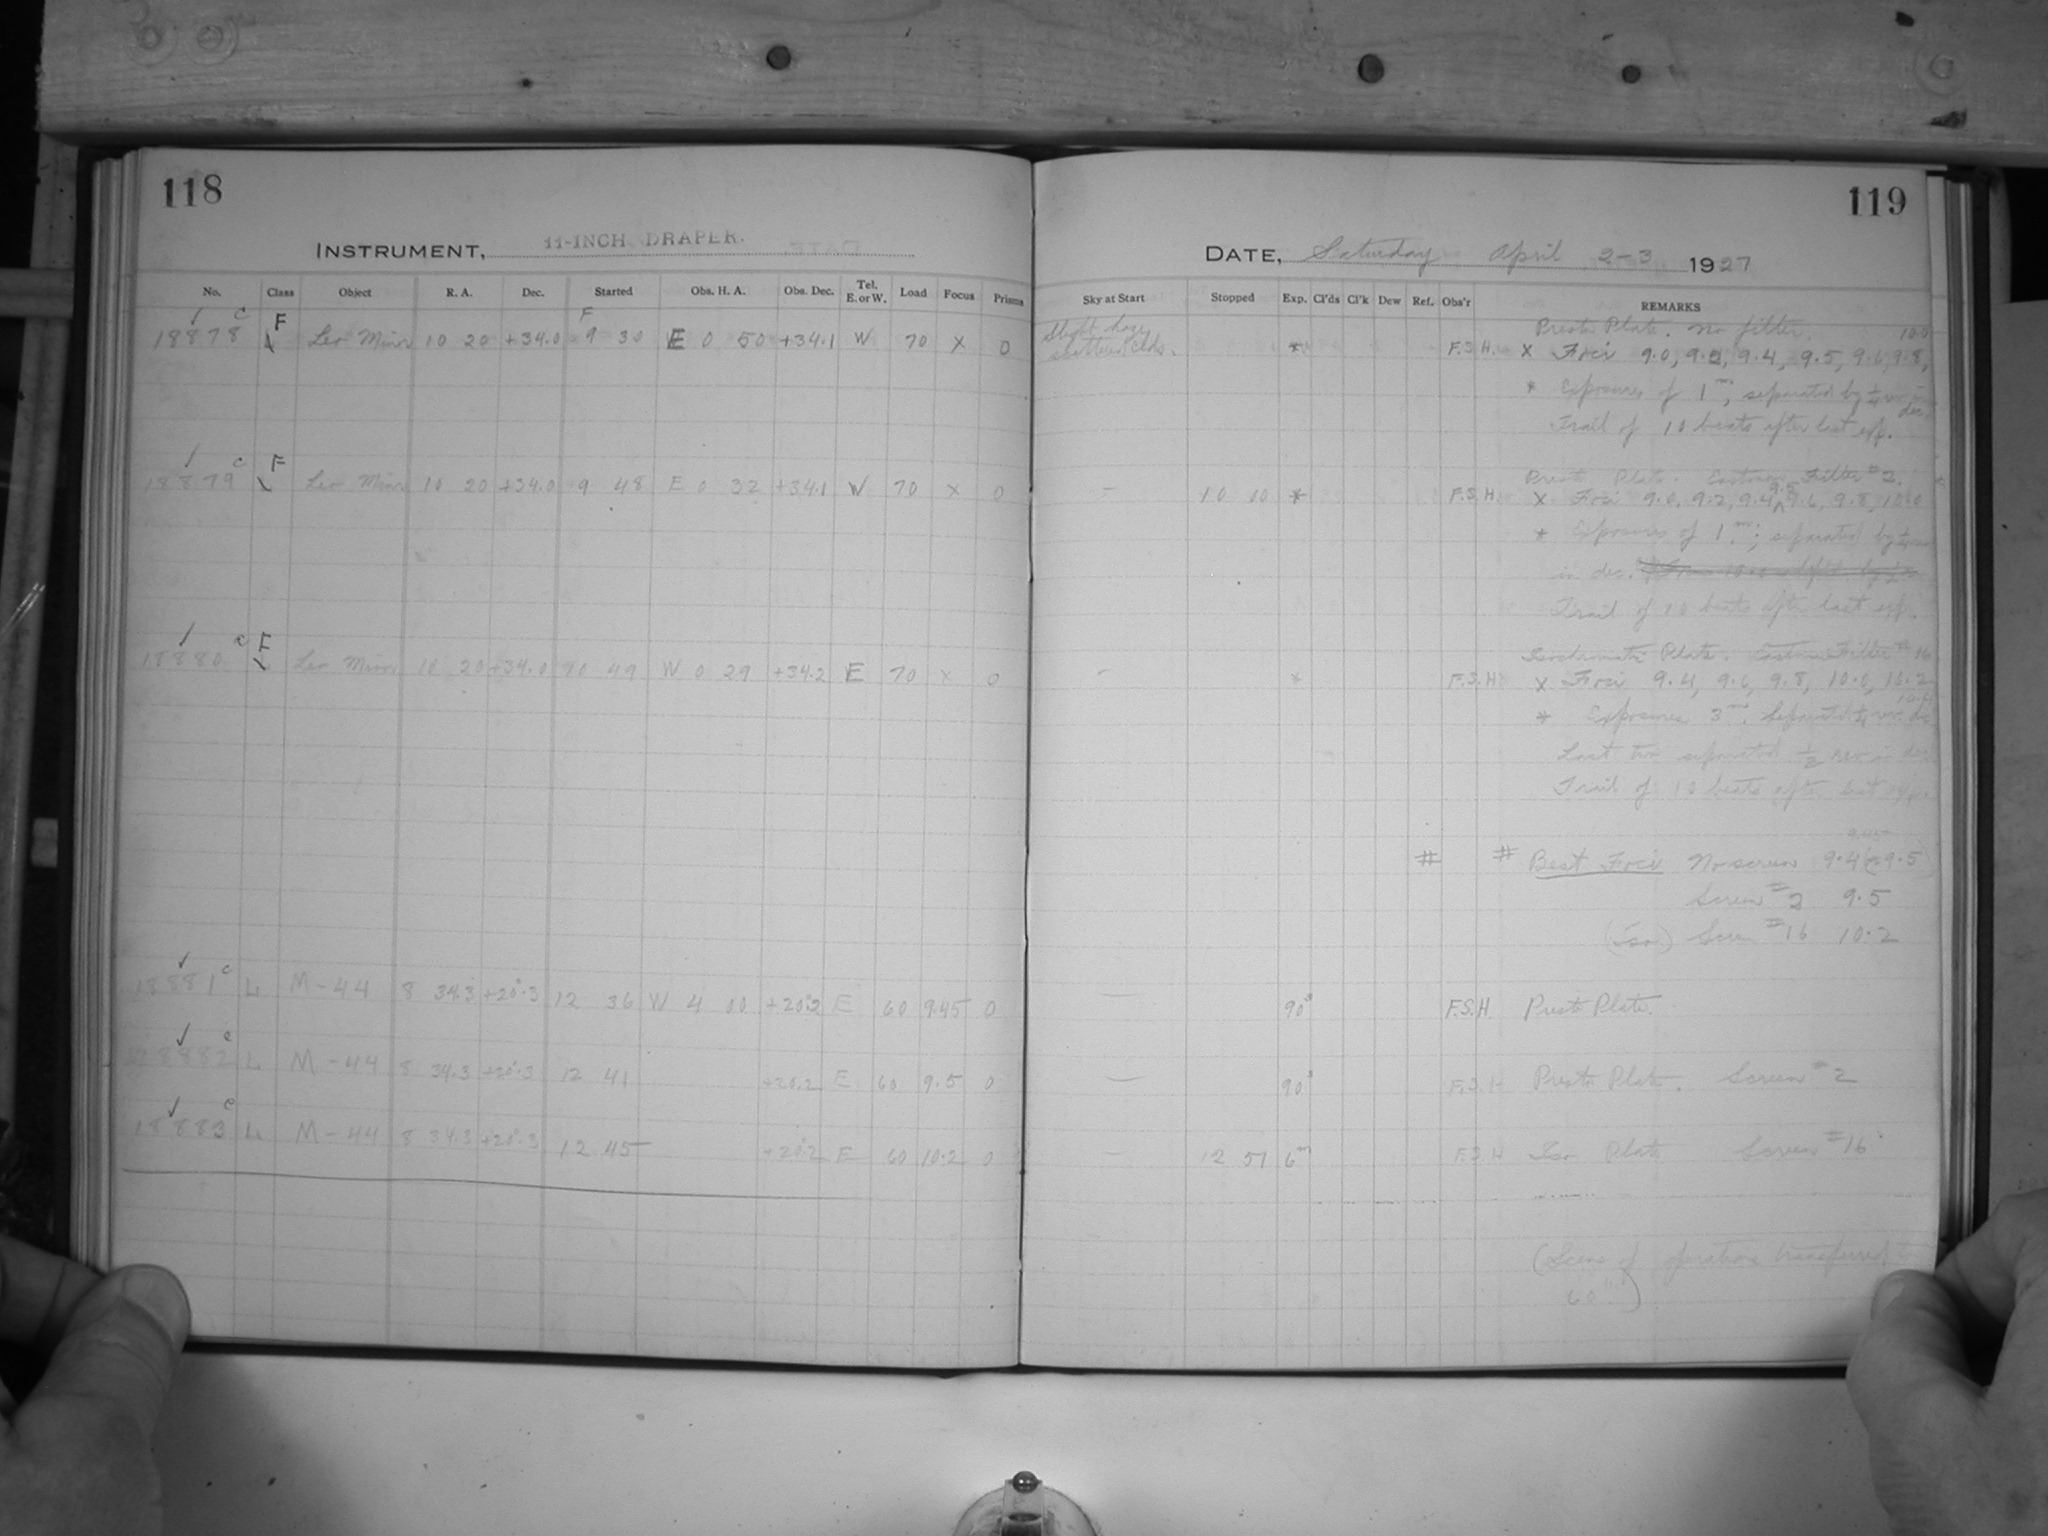 118
INSTRUMENT, 11-INCH DRAPER.
No. Class Object R. A. Dec. Started Obs. H. A. Obs. Dec. Tel. E. or W. Load Focus Prisms
18878 c F Leo Minor 10 20 +34.0 9 30 E 0 50 +34.1 W 70 X 0
18879 c F Leo Minor 10 20 +34.0 9 48 E 0 32 +34.1 W 70 X 0
18880 c F Leo Minor 10 20 +34.0 10 49 W 0 29 +34.2 E 70 X 0
18881 c L M-44 8 34.3 +20°.3 12 36 W 4 00 +20°.2 E 60 9.45 0
18882 c L M-44 8 34.3 +20°.3 12 41 +20.2 E 60 9.5 0
18883 c L M-44 8 34.3 +20°.3 12 45 +20°.2 E 60 10.2 0
119
DATE, Saturday April 2-3 1927
Sky at Start Stopped Exp. Cl'ds Cl'k Dew Ref. Obs'r REMARKS
Slight haze Presto Plate. No filter. 10.0
scattered clds. * F.S.H. X Foci 9.0, 9.2, 9.4, 9.5, 9.6, 9.8,
* Exposures of 1m; separated by ¼ rev. in dec.
Trail of 10 beats after last exp.
Presto Plate. Eastman Filter #2.
— 10 10 * F.S.H. X Foci 9.0, 9.2, 9.4, 9.5 9.6, 9.8, 10.0
* Exposures of 1m; separated by ¼ rev
in dec.
Trail of 10 beats after last exp.
Isochromatic Plate. Eastman Filter #16
— * F.S.H. X Foci 9.4, 9.6, 9.8, 10.0, 10.2
10.4
* Exposures 3m. Separated ¼ rev. dec
Last two separated ½ rev in dec
Trail of 10 beats after last exp.
9.45
# # Best Foci No screen 9.4 (9.5)
Screen #2 9.5
(Iso.) Screen #16 10.2
— 90s F.S.H. Presto Plate.
— 90s F.S.H. Presto Plate. Screen #2
— 12 51 6m F.S.H Iso Plate Screen #16
transferred
60